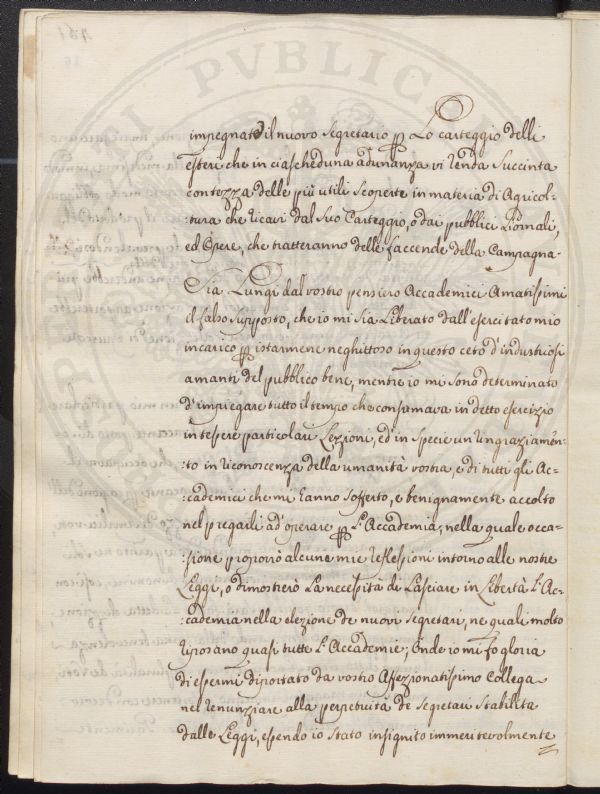 impegnato il nuovo Segretario per Lo carteggio delli
esteri che in ciascheduna adunanza vi renda Succinta
contezza delle più utili Scoperte in materia di Agricol-
:tura che ricavi dal Suo Carteggio, o dai pubblici Giornali,
ed Opere, che tratteranno delle faccende della Campagna.
Sia Lungi dal vostro pensiero Accademici Amatissimi
il falso Supposto, che io mi Sia Liberato dall'esercitato mio
incarico per istarmene neghittoso in questo ceto d'industriosi
amanti del pubblico bene, mentre io mi Sono determinato
d'impiegare tutto il tempo che consumava in detto esercizio
in tessere particolari Lezioni, ed in Specie un ringraziamen-
:to in riconoscenza della umanità vostra, e di tutti gli Ac-
:cademici che mi hanno Sofferto, e benignamente accolto
nel pregarli ad operare per L'Accademia, nella quale occa-
:sione proporrò alcune mie riflessioni intorno alle nostre
Leggi, o dimostrerò La necessità di Lasciare in Libertà L'Ac-
:cademia nella elezione de nuovi Segretari, ne quali molto
riposano quasi tutte L'Accademie; Onde io mi fo gloria
di essermi diportato da vostro Affezionatissimo Collega
nel renunziare alla perpetuità de Segretari Stabilita
dalle Leggi, essendo io Stato insignito immeritevolmente